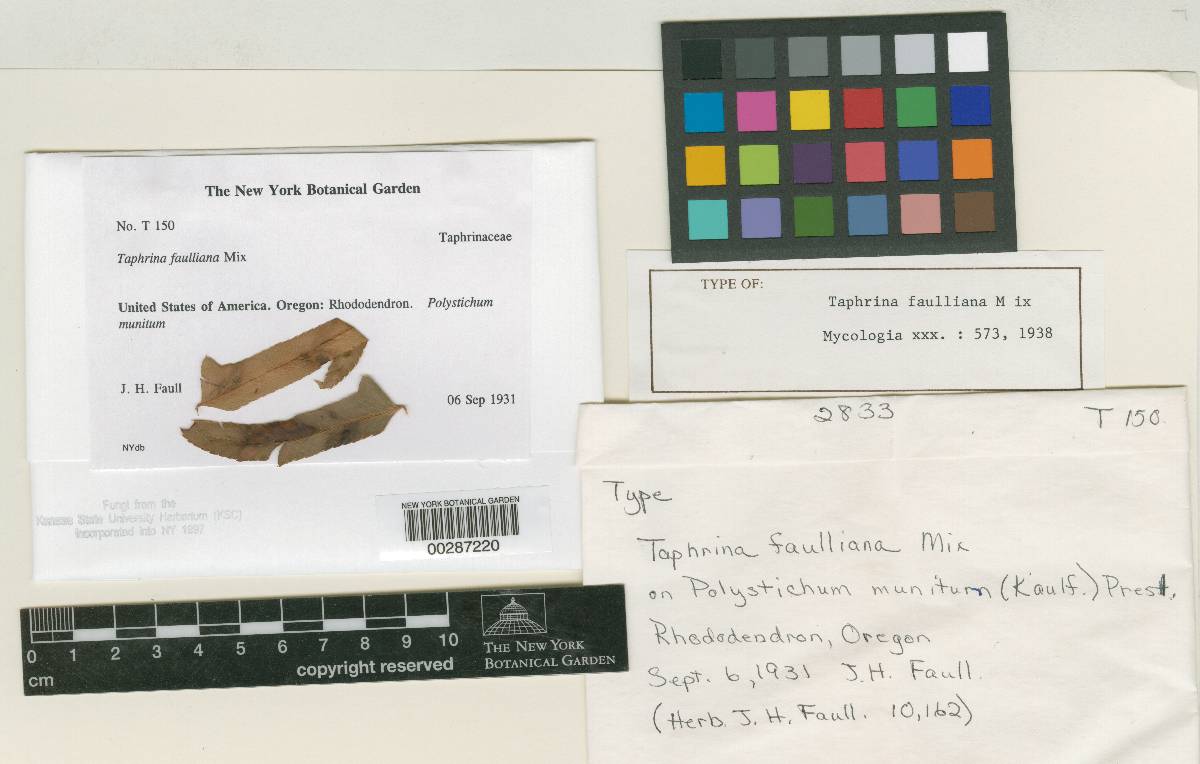 The New York Botanical Garden
No. T 150
Taphrinaceae
Taphrina faulliana Mix
United States of America. Oregon: Rhododendron. Polystichum
munitum
J. H. Faull
06 Sep 1931
NYdb
Fungi from the
Kansas State University Herbarium (KSC)
incorporated into NY 1997
NEW YORK BOTANICAL GARDEN
00287220
0 1 2 3 4 5 6 7 8 9 10
cm
copyright reserved
THE NEW YORK
BOTANICAL GARDEN
TYPE OF:
Taphrina faulliana M ix
Mycologia xxx. : 573, 1938
2833 T 150.
Type
Taphrina faulliana Mix
on Polystichum munitum (Kaulf.) Presl,
Rhododendron, Oregon
Sept. 6, 1931 J.H. Faull.
(Herb. J. H. Faull. 10,162)